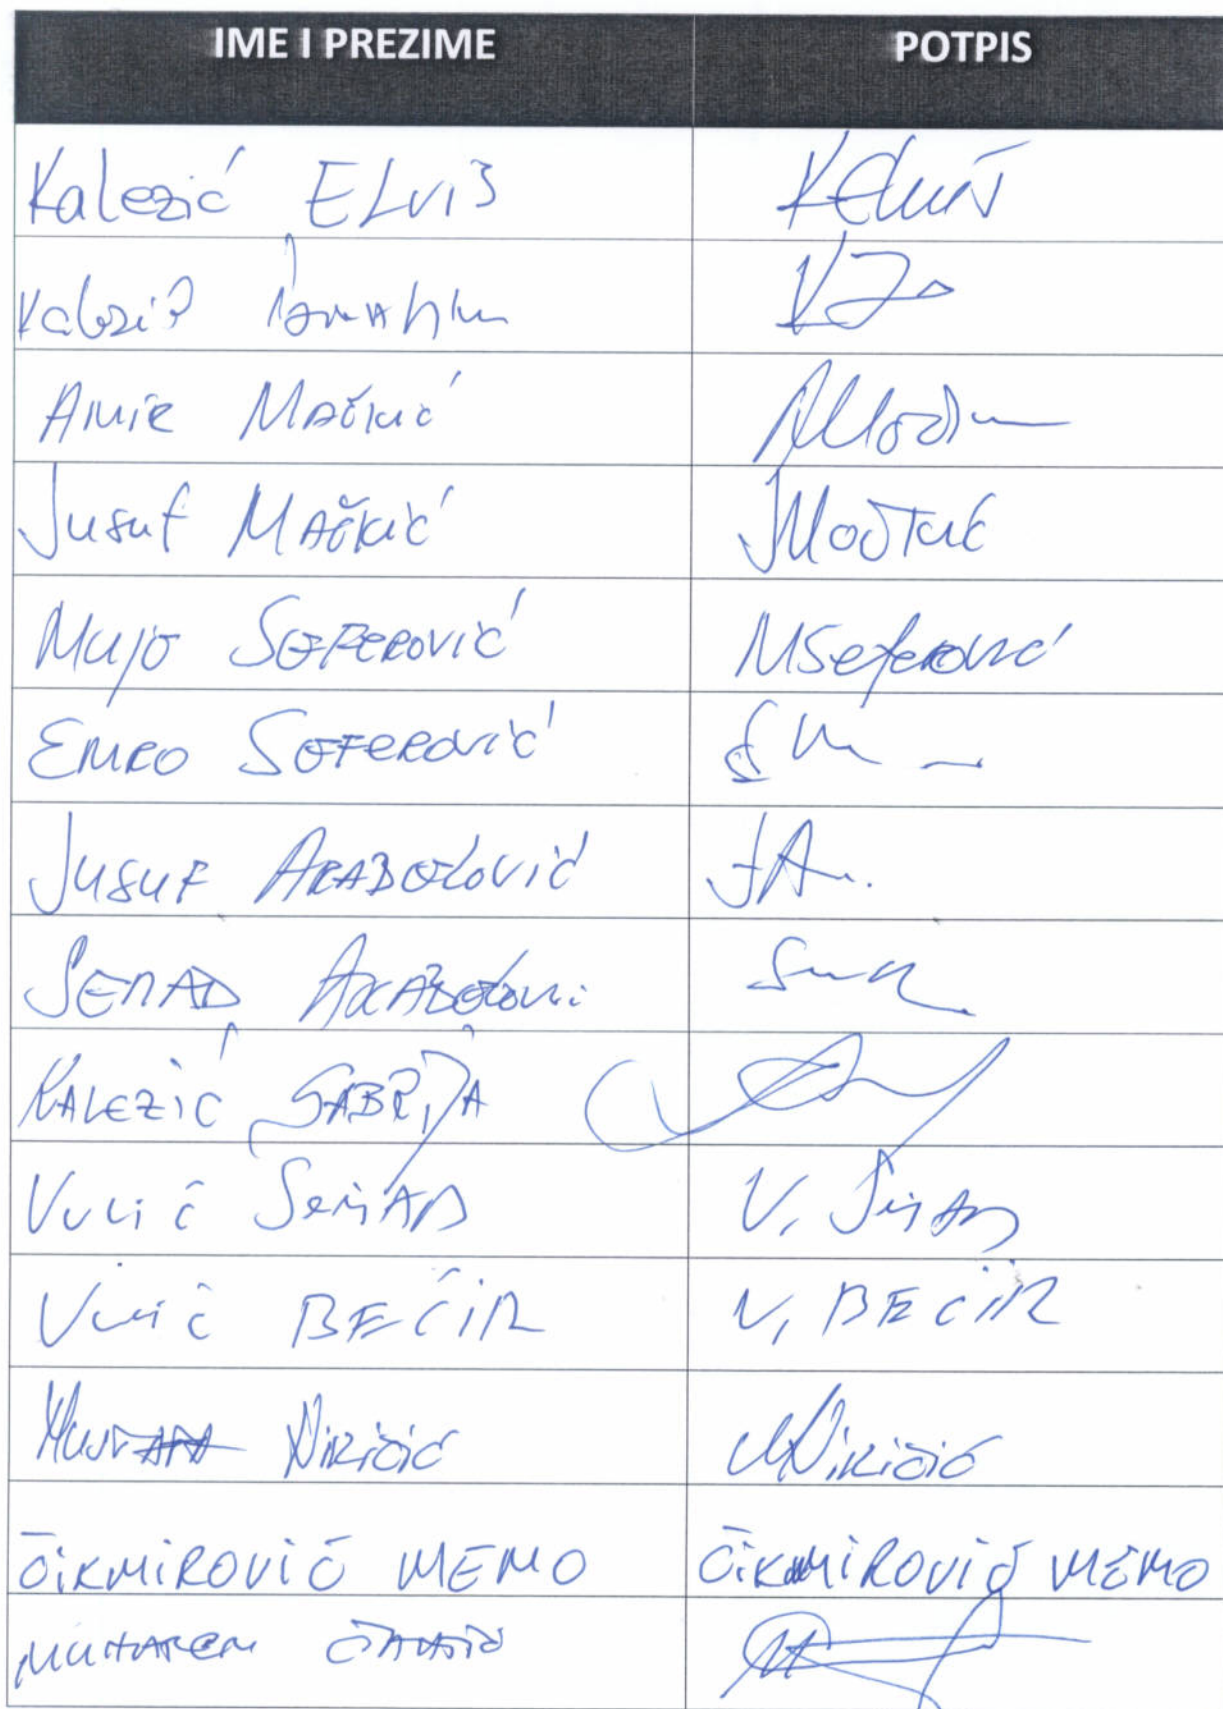 IME I PREZIME POTPIS
Kalezić ELVIS KElvis
Kalezić
Amir Mačkić
Jusuf MAČKIĆ JMačkić
Mujo SEFEROVIĆ MSeferović
EMRO SEFEROVIĆ
JUSUF ARABELOVIĆ JA.
SENAD
KALEZIĆ SABRIJA
Vulić SENAD V. SENAD
Vulić BEĆIR V, BEĆIR
NIKIČIĆ MNikičić
ČIKMIROVIĆ MEMO ČIKMIROVIĆ MEMO
MUHAREM